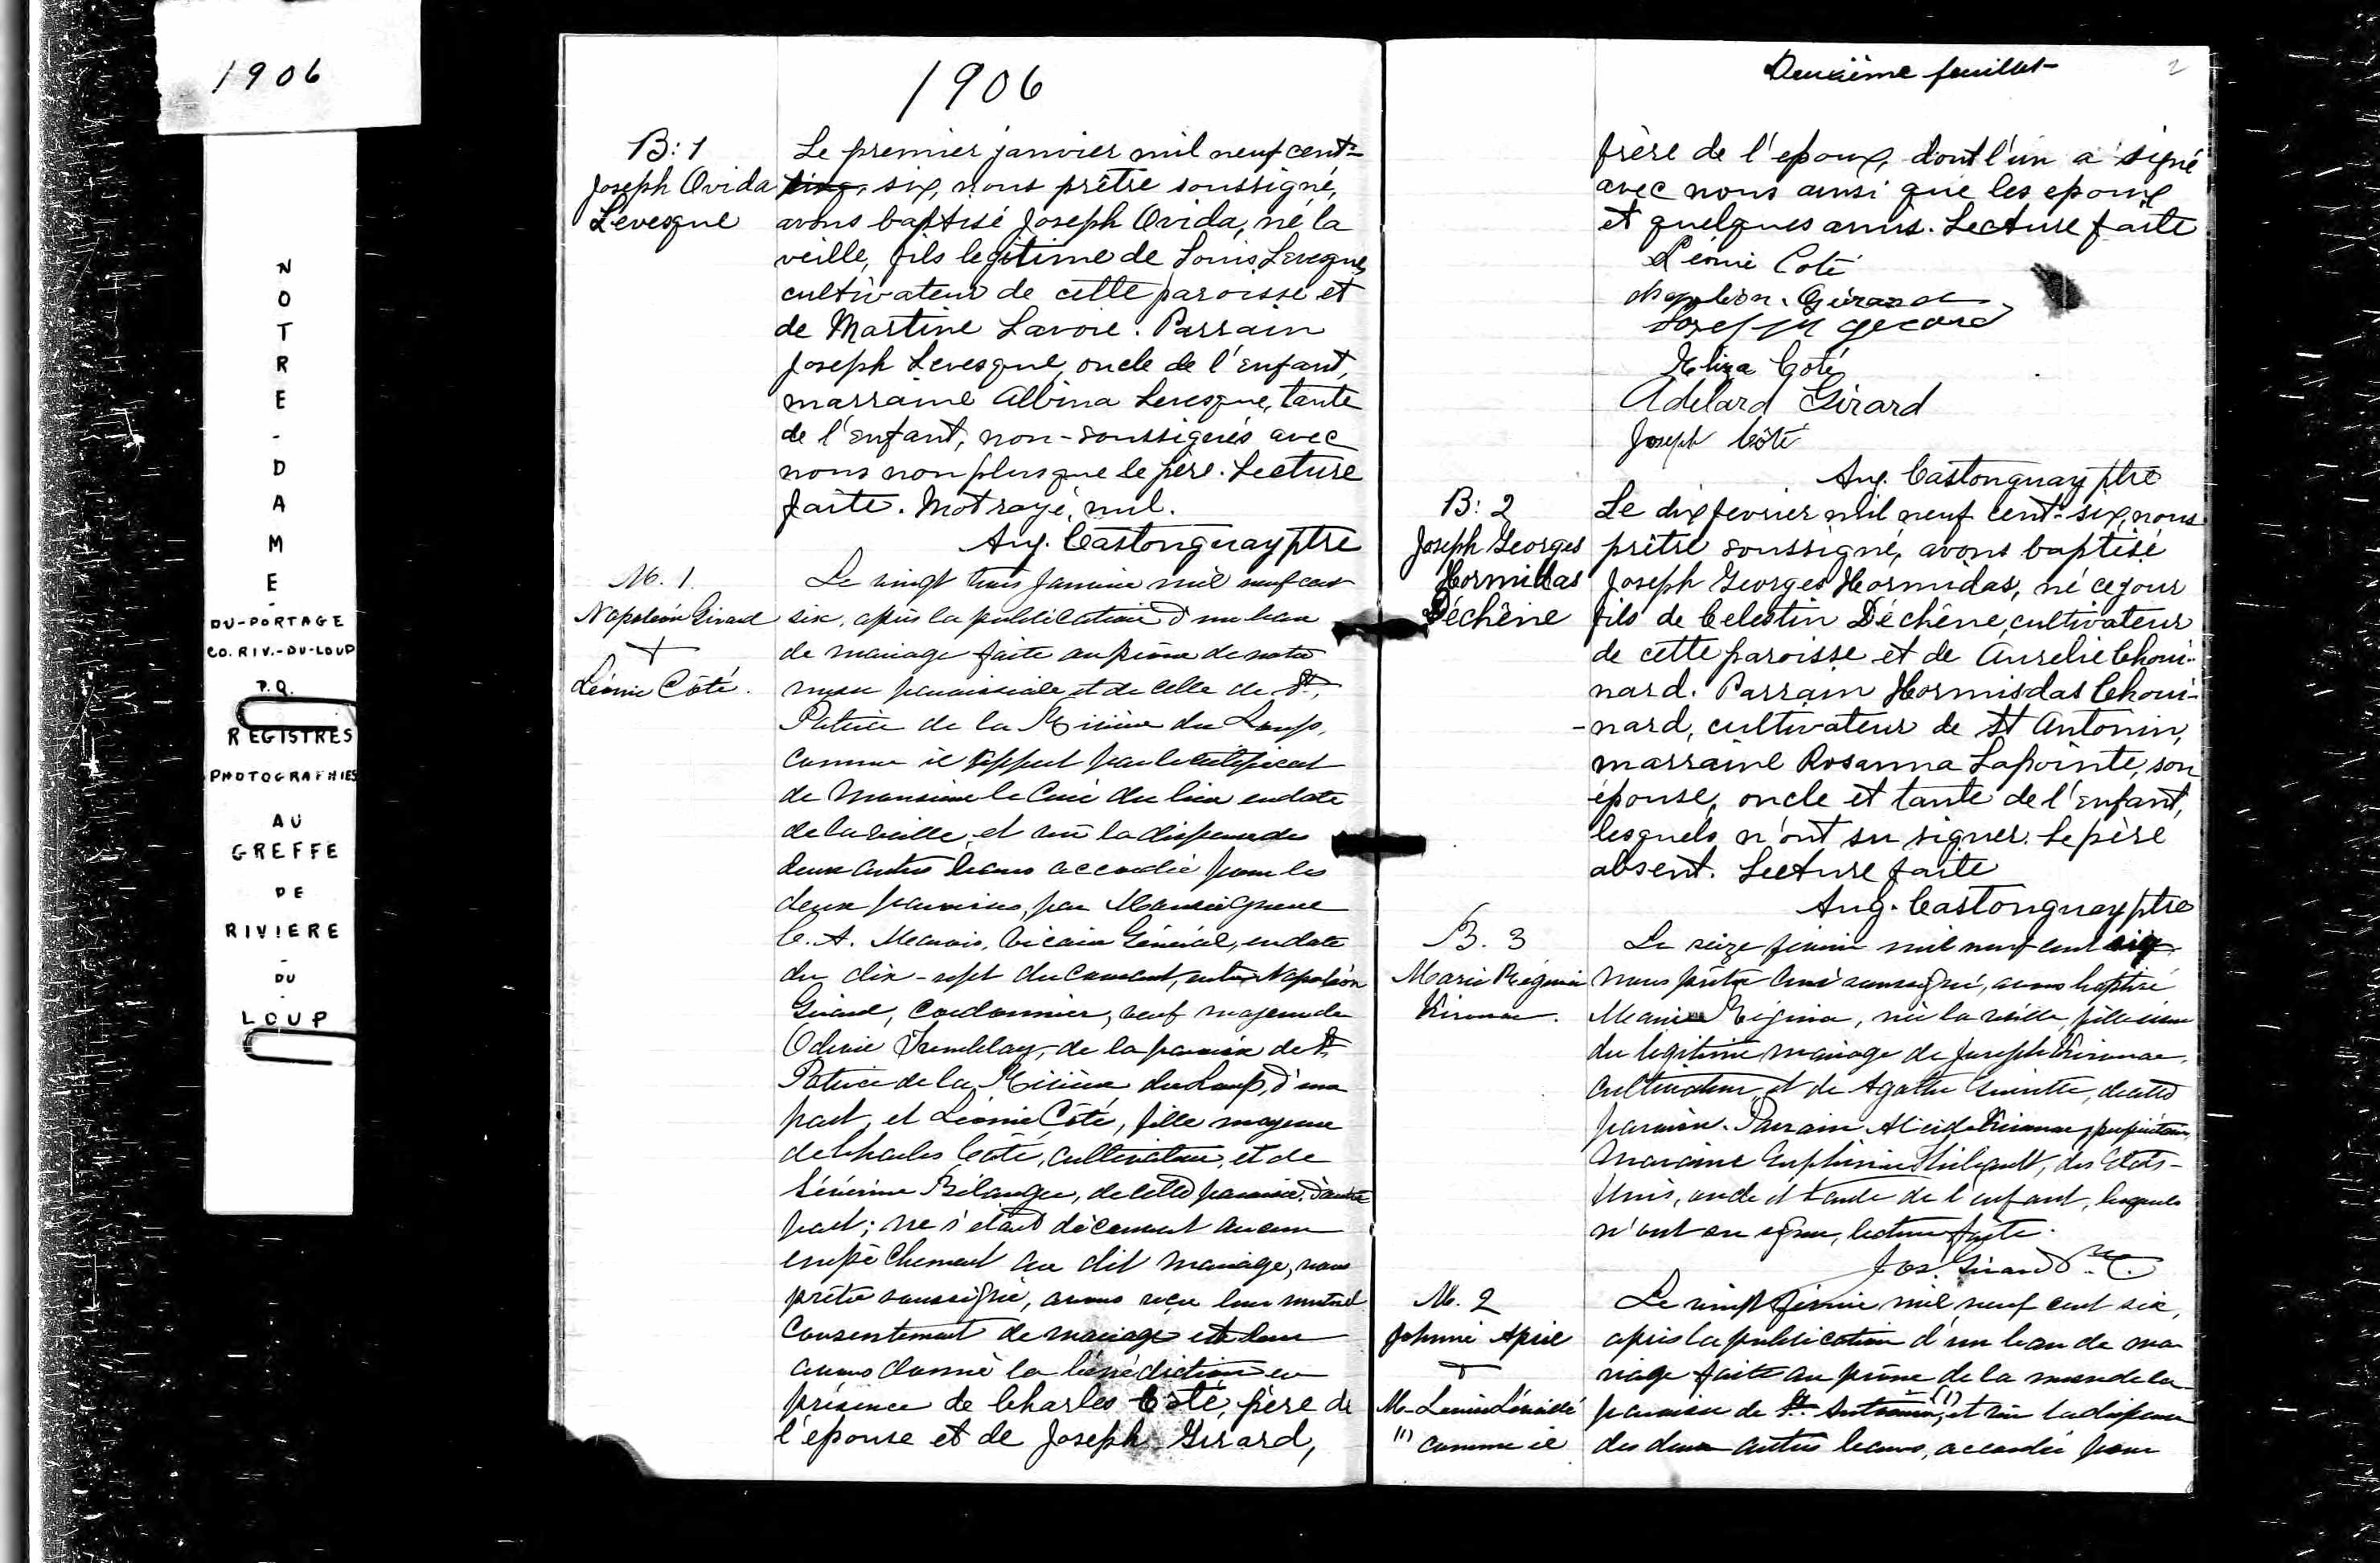 1906
NOTRE-DAME-
DU-PORTAGE
CO. RIV.-DU-LOUP
P.Q.
REGISTRES
PHOTOGRAPHIES
AU
GREFFE
DE
RIVIERE
-
DU
-
LOUP
1906
B: 1
Joseph Ovida
Levesque
Le premier janvier mil neuf cent-
six, nous prêtre soussigné,
avons baptisé Joseph Ovida, né la
veille, fils legitime de Louis Levesque,
cultivateur de cette paroisse et
de Martine Lavoie. Parrain
Joseph Levesque, oncle de l'enfant,
marraine Albina Levesque, tante
de l'enfant, non-soussignés avec
nous non plus que le père. Lecture
faite. Mot rayé, nul.
Aug. Castonguay ptre
M. 1.
Napoléon Girard
+
Léonie Côté.
Le vingt trois janvier mil neuf cent
six, après la publication d'un ban
de mariage faite au prône de notre
messe paroissiale et de celle de St.
Patrice de la Rivière du Loup,
comme il appert par le certificat
de Monsieur le Curé du lieu en date
de la veille, et vu la dispense des
deux autres bans accordée pour les
deux paroisses, par Monseigneur
C. A. Marois, Vicaire Général, en date
du dix-sept du courant, entre Napoléon
Girard, cordonnier, veuf majeur de
Tremblay, de la paroisse de St.
Patrice de la Rivière du Loup, d'une
part, et Léonie Côté, fille majeure
de Charles Côté, cultivateur, et de
Séverine Bélanger, de cette paroisse, d'autre
part; ne s'étant découvert aucun
empêchement au dit mariage, nous
prêtre soussigné, avons reçu leur mutuel
consentement de mariage et leur
avons donné la bénédiction en
présence de Charles Côté, père de
l'epouse et de Joseph Girard,
Deuxième feuillet
2
frère de l'epoux, dont l'un a signé
avec nous ainsi que les epoux
et quelques amis. Lecture faite
Léonie Coté
Napoléon. Girard
Joseph Girard
Eliza Coté
Adelard Girard
Joseph Côté
Aug. Castonguay ptre
B: 2
Joseph Georges
Hormidas
Déchêne
Le dix fevrier mil neuf cent-six, nous
prêtre soussigné, avons baptisé
Joseph Georges Hormidas, né ce jour
fils de Celestin Déchêne, cultivateur
de cette paroisse et de Aurelie Choui-
nard. Parrain Hormisdas Choui-
-nard, cultivateur de St Antonin,
marraine Rosanna Lapointe, son
épouse, oncle et tante de l'enfant,
lesquels n'ont su signer. Le père
absent. Lecture faite
Aug. Castonguay ptre
B. 3
Marie Régina
Le seize février mil neuf cent six
nous prêtre curé soussigné, avons baptisé
Marie Régina, née la veille, fille issue
du légitime mariage de Joseph
cultivateur, et de Agathe de cette
paroisse. Parrain Alcide
Marraine Thibault, des Etats-
Unis, oncle et tante de l'enfant, lesquels
n'ont su signer, lecture faite.
Jos. Girard Ptre C.
M. 2
Johnné April
+
M. Louise
(1) comme il
Le vingt février mil neuf cent six,
après la publication d'un ban de ma-
riage faite au prône de la messe de la
paroisse de St. Antonin,(1) et vu la dispense
des deux autres bans, accordée pour